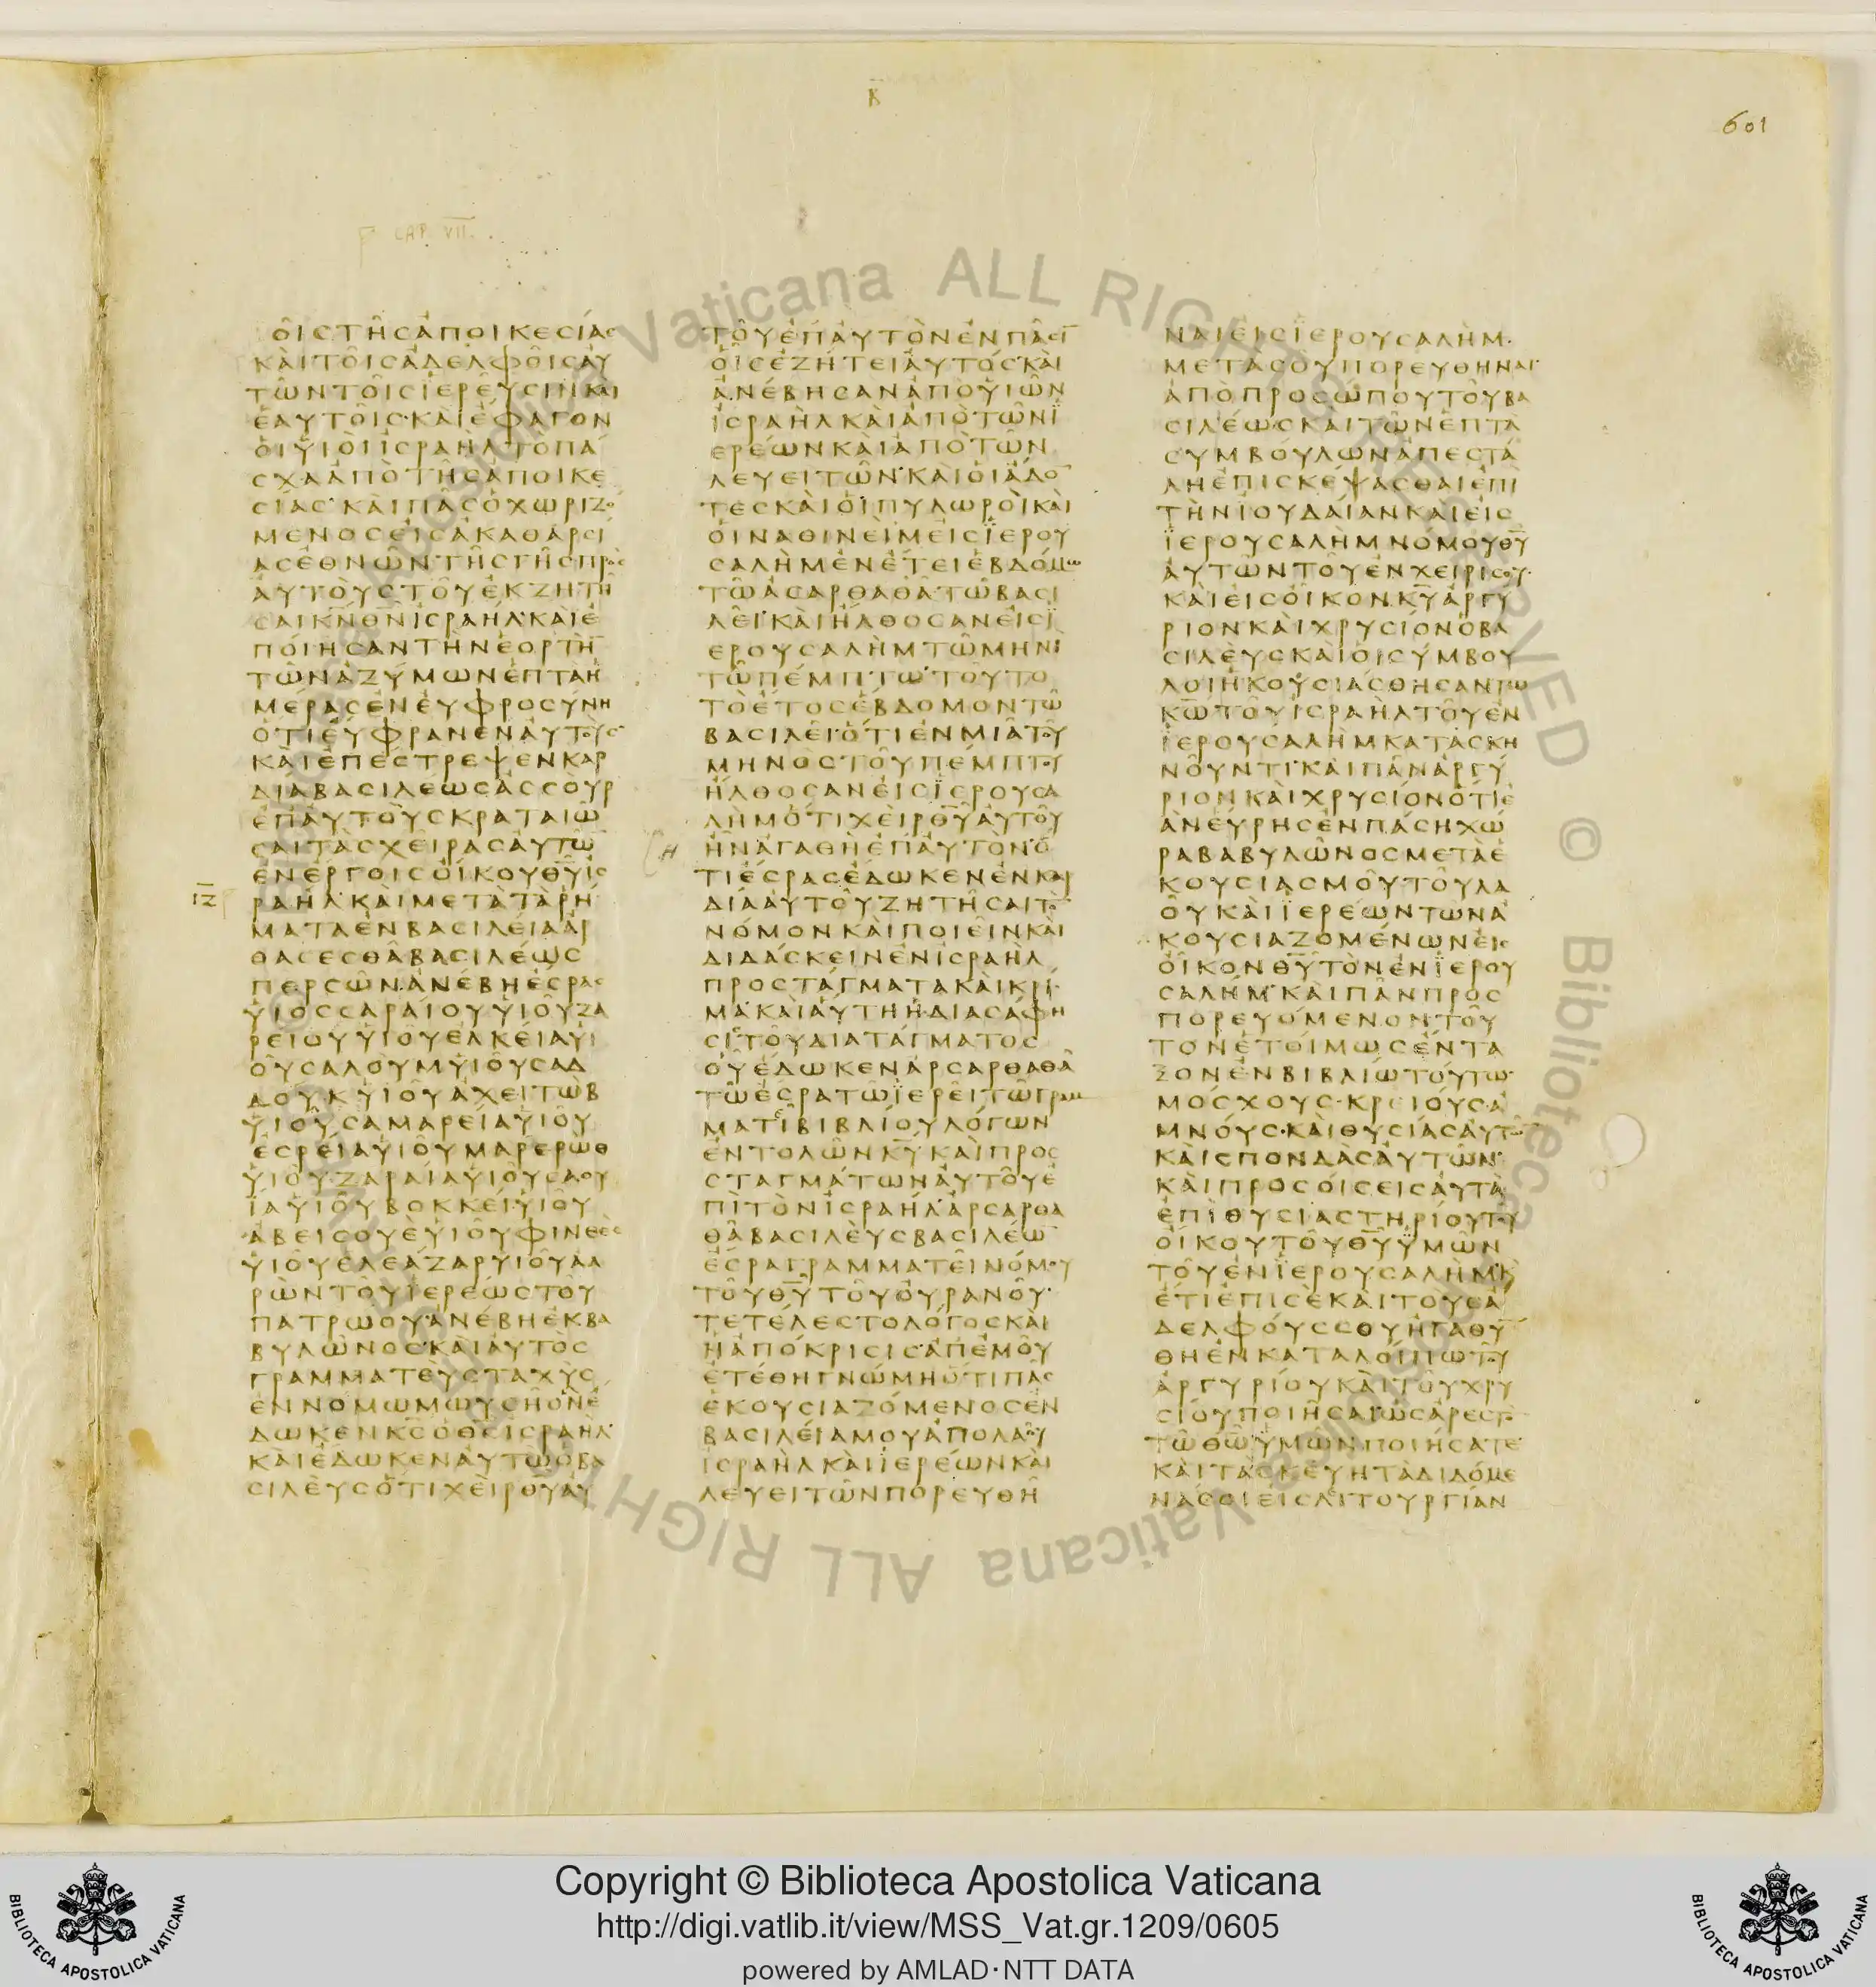 Β
601
CAP. VII.
ΟΙΣ ΤΗΣ ΑΠΟΙΚΕΣΙΑΣ
ΚΑΙ ΤΟΙΣ ΑΔΕΛΦΟΙΣ ΑΥ
ΤΩΝ ΤΟΙΣ ΙΕΡΕΥΣΙΝ ΚΑΙ
ΕΑΥΤΟΙΣ· ΚΑΙ ΕΦΑΓΟΝ
ΟΙ ΥΙΟΙ ΙΣΡΑΗΛ ΤΟ ΠΑ
ΣΧΑ ΑΠΟ ΤΗΣ ΑΠΟΙΚΕ
ΣΙΑΣ· ΚΑΙ ΠΑΣ Ο ΧΩΡΙΖΟ
ΜΕΝΟΣ ΕΙΣ ΑΚΑΘΑΡΣΙ
ΑΣ ΕΘΝΩΝ ΤΗΣ ΓΗΣ ΠΡΟΣ
ΑΥΤΟΥΣ ΤΟΥ ΕΚΖΗΤΗ
ΣΑΙ ΚΝ ΘΝ ΙΣΡΑΗΛ· ΚΑΙ Ε
ΠΟΙΗΣΑΝ ΤΗΝ ΕΟΡΤΗ̅
ΤΩΝ ΑΖΥΜΩΝ ΕΠΤΑ Η
ΜΕΡΑΣ ΕΝ ΕΥΦΡΟΣΥΝΗ
ΟΤΙ ΕΥΦΡΑΝΕΝ ΑΥΤΟΥΣ
ΚΑΙ ΕΠΕΣΤΡΕΨΕΝ ΚΑΡ
ΔΙΑ ΒΑΣΙΛΕΩΣ ΑΣΣΟΥΡ
ΕΠ ΑΥΤΟΥΣ ΚΡΑΤΑΙΩ
ΣΑΙ ΤΑΣ ΧΕΙΡΑΣ ΑΥΤΩ̅
ΕΝ ΕΡΓΟΙΣ ΟΙΚΟΥ ΘΥ ΙΣ
ΡΑΗΛ· ΚΑΙ ΜΕΤΑ ΤΑ ΡΗ
ΜΑΤΑ ΕΝ ΒΑΣΙΛΕΙΑ ΑΡ
ΘΑΣΕΣΘΑ ΒΑΣΙΛΕΩΣ
ΠΕΡΣΩΝ ΑΝΕΒΗ ΕΣΡΑΣ
ΥΙΟΣ ΣΑΡΑΙΟΥ ΥΙΟΥ ΖΑ
ΡΕΙΟΥ ΥΙΟΥ ΕΛΚΕΙΑ ΥΙ
ΟΥ ΣΑΛΟΥΜ ΥΙΟΥ ΣΑΔ
ΔΟΥΚ ΥΙΟΥ ΑΧΕΙΤΩΒ
ΥΙΟΥ ΣΑΜΑΡΕΙΑ ΥΙΟΥ
ΕΣΡΕΙΑ ΥΙΟΥ ΜΑΡΕΡΩΘ
ΥΙΟΥ ΖΑΡΑΙΑ ΥΙΟΥ ΣΑΟΥ
ΙΑ ΥΙΟΥ ΒΟΚΚΕΙ ΥΙΟΥ
ΑΒΕΙΣΟΥΕ ΥΙΟΥ ΦΙΝΕΕΣ
ΥΙΟΥ ΕΛΕΑΖΑΡ ΥΙΟΥ ΑΑ
ΡΩΝ ΤΟΥ ΙΕΡΕΩΣ ΤΟΥ
ΠΑΤΡΩΟΥ· ΑΝΕΒΗ ΕΚ ΒΑ
ΒΥΛΩΝΟΣ· ΚΑΙ ΑΥΤΟΣ
ΓΡΑΜΜΑΤΕΥΣ ΤΑΧΥΣ
ΕΝ ΝΟΜΩ ΜΩΥΣΗ ΟΝ Ε
ΔΩΚΕΝ ΚΣ Ο ΘΣ ΙΣΡΑΗΛ·
ΚΑΙ ΕΔΩΚΕΝ ΑΥΤΩ Ο ΒΑ
ΣΙΛΕΥΣ ΟΤΙ ΧΕΙΡ ΘΥ ΑΥ
ΤΟΥ ΕΠ ΑΥΤΟΝ ΕΝ ΠΑΣΙ̅
ΟΙΣ ΕΖΗΤΕΙ ΑΥΤΟΣ· ΚΑΙ
ΑΝΕΒΗΣΑΝ ΑΠΟ ΥΙΩΝ
ΙΣΡΑΗΛ ΚΑΙ ΑΠΟ ΤΩΝ Ι
ΕΡΕΩΝ ΚΑΙ ΑΠΟ ΤΩΝ
ΛΕΥΕΙΤΩΝ· ΚΑΙ ΟΙ ΑΔΟ̅
ΤΕΣ ΚΑΙ ΟΙ ΠΥΛΩΡΟΙ ΚΑΙ
ΟΙ ΝΑΘΙΝΕΙΜ ΕΙΣ ΙΕΡΟΥ
ΣΑΛΗΜ ΕΝ ΕΤΕΙ ΕΒΔΟΜΩ
ΤΩ ΑΣΑΡΘΑΘΑ ΤΩ ΒΑΣΙ
ΛΕΙ· ΚΑΙ ΗΛΘΟΣΑΝ ΕΙΣ Ι
ΕΡΟΥΣΑΛΗΜ ΤΩ ΜΗΝΙ
ΤΩ ΠΕΜΠΤΩ· ΤΟΥΤΟ
ΤΟ ΕΤΟΣ ΕΒΔΟΜΟΝ ΤΩ
ΒΑΣΙΛΕΙ· ΟΤΙ ΕΝ ΜΙΑ ΤΟΥ
ΜΗΝΟΣ ΤΟΥ ΠΕΜΠΤΟΥ
ΗΛΘΟΣΑΝ ΕΙΣ ΙΕΡΟΥΣΑ
ΛΗΜ ΟΤΙ ΧΕΙΡ ΘΥ ΑΥΤΟΥ
Η
ΗΝ ΑΓΑΘΗ ΕΠ ΑΥΤΟΝ· Ο
ΤΙ ΕΣΡΑΣ ΕΔΩΚΕΝ ΕΝ ΚΑΡ
ΔΙΑ ΑΥΤΟΥ ΖΗΤΗΣΑΙ ΤΟ̅
ΝΟΜΟΝ ΚΑΙ ΠΟΙΕΙΝ ΚΑΙ
ΔΙΔΑΣΚΕΙΝ ΕΝ ΙΣΡΑΗΛ
ΠΡΟΣΤΑΓΜΑΤΑ ΚΑΙ ΚΡΙ
ΜΑ· ΚΑΙ ΑΥΤΗ Η ΔΙΑΣΑΦΗ
ΣΙΣ ΤΟΥ ΔΙΑΤΑΓΜΑΤΟΣ
ΟΥ ΕΔΩΚΕΝ ΑΡΣΑΡΘΑΘΑ
ΤΩ ΕΣΡΑ ΤΩ ΙΕΡΕΙ ΤΩ ΓΡΑΜ
ΜΑΤΕΙ ΒΙΒΛΙΟΥ ΛΟΓΩΝ
ΕΝΤΟΛΩΝ ΚΥ ΚΑΙ ΠΡΟΣ
ΣΤΑΓΜΑΤΩΝ ΑΥΤΟΥ Ε
ΠΙ ΤΟΝ ΙΣΡΑΗΛ· ΑΡΣΑΡΘΑ
ΘΑ ΒΑΣΙΛΕΥΣ ΒΑΣΙΛΕΩ̅
ΕΣΡΑ ΓΡΑΜΜΑΤΕΙ ΝΟΜΟΥ
ΤΟΥ ΘΥ ΤΟΥ ΟΥΡΑΝΟΥ·
ΤΕΤΕΛΕΣΤΟ ΛΟΓΟΣ ΚΑΙ
Η ΑΠΟΚΡΙΣΙΣ· ΑΠ ΕΜΟΥ
ΕΤΕΘΗ ΓΝΩΜΗ ΟΤΙ ΠΑΣ
ΕΚΟΥΣΙΑΖΟΜΕΝΟΣ ΕΝ
ΒΑΣΙΛΕΙΑ ΜΟΥ ΑΠΟ ΛΑΟΥ
ΙΣΡΑΗΛ ΚΑΙ ΙΕΡΕΩΝ ΚΑΙ
ΛΕΥΕΙΤΩΝ ΠΟΡΕΥΘΗ
ΝΑΙ ΕΙΣ ΙΕΡΟΥΣΑΛΗΜ·
ΜΕΤΑ ΣΟΥ ΠΟΡΕΥΘΗΝΑΙ·
ΑΠΟ ΠΡΟΣΩΠΟΥ ΤΟΥ ΒΑ
ΣΙΛΕΩΣ ΚΑΙ ΤΩΝ ΕΠΤΑ
ΣΥΜΒΟΥΛΩΝ ΑΠΕΣΤΑ
ΛΗ ΕΠΙΣΚΕΨΑΣΘΑΙ ΕΠΙ
ΤΗΝ ΙΟΥΔΑΙΑΝ ΚΑΙ ΕΙΣ
ΙΕΡΟΥΣΑΛΗΜ ΝΟΜΟΥ ΘΥ
ΑΥΤΩΝ ΤΟΥ ΕΝ ΧΕΙΡΙ ΣΟΥ·
ΚΑΙ ΕΙΣ ΟΙΚΟΝ ΚΥ ΑΡΓΥ
ΡΙΟΝ ΚΑΙ ΧΡΥΣΙΟΝ Ο ΒΑ
ΣΙΛΕΥΣ ΚΑΙ ΟΙ ΣΥΜΒΟΥ
ΛΟΙ ΗΚΟΥΣΙΑΣΘΗΣΑΝ ΤΩ
ΚΩ ΤΟΥ ΙΣΡΑΗΛ ΤΟΥ ΕΝ
ΙΕΡΟΥΣΑΛΗΜ ΚΑΤΑΣΚΗ
ΝΟΥΝΤΙ· ΚΑΙ ΠΑΝ ΑΡΓΥ
ΡΙΟΝ ΚΑΙ ΧΡΥΣΙΟΝ ΟΤΙ Ε
ΑΝ ΕΥΡΗΣ ΕΝ ΠΑΣΗ ΧΩ
ΡΑ ΒΑΒΥΛΩΝΟΣ ΜΕΤΑ Ε
ΚΟΥΣΙΑΣΜΟΥ ΤΟΥ ΛΑ
ΟΥ ΚΑΙ ΙΕΡΕΩΝ ΤΩΝ Α
ΚΟΥΣΙΑΖΟΜΕΝΩΝ ΕΙΣ
ΟΙΚΟΝ ΘΥ ΤΟΝ ΕΝ ΙΕΡΟΥ
ΣΑΛΗΜ· ΚΑΙ ΠΑΝ ΠΡΟΣ
ΠΟΡΕΥΟΜΕΝΟΝ ΤΟΥ
ΤΟΝ ΕΤΟΙΜΩΣ ΕΝΤΑ
ΞΟΝ ΕΝ ΒΙΒΛΙΩ ΤΟΥΤΩ·
ΜΟΣΧΟΥΣ· ΚΡΕΙΟΥΣ· Α
ΜΝΟΥΣ· ΚΑΙ ΘΥΣΙΑΣ ΑΥΤΩ̅
ΚΑΙ ΣΠΟΝΔΑΣ ΑΥΤΩΝ·
ΚΑΙ ΠΡΟΣΟΙΣΕΙΣ ΑΥΤΑ
ΕΠΙ ΘΥΣΙΑΣΤΗΡΙΟΥ ΤΟΥ
ΟΙΚΟΥ ΤΟΥ ΘΥ ΥΜΩΝ
ΤΟΥ ΕΝ ΙΕΡΟΥΣΑΛΗΜ· Κ
ΕΤΙ ΕΠΙ ΣΕ ΚΑΙ ΤΟΥΣ Α
ΔΕΛΦΟΥΣ ΣΟΥ ΗΓΑΘΥ̅
ΘΗ ΕΝ ΚΑΤΑΛΟΙΠΩ ΤΟΥ
ΑΡΓΥΡΙΟΥ ΚΑΙ ΤΟΥ ΧΡΥ
ΣΙΟΥ ΠΟΙΗΣΑΙ ΩΣ ΑΡΕΣΤΟ̅
ΤΩ ΘΩ ΥΜΩΝ ΠΟΙΗΣΑΤΕ
ΚΑΙ ΤΑ ΣΚΕΥΗ ΤΑ ΔΙΔΟΜΕ
ΝΑ ΣΟΙ ΕΙΣ ΛΙΤΟΥΡΓΙΑΝ
Copyright © Biblioteca Apostolica Vaticana
http://digi.vatlib.it/view/MSS_Vat.gr.1209/0605
powered by AMLAD·NTT DATA
BIBLIOTECA APOSTOLICA VATICANA
BIBLIOTECA APOSTOLICA VATICANA